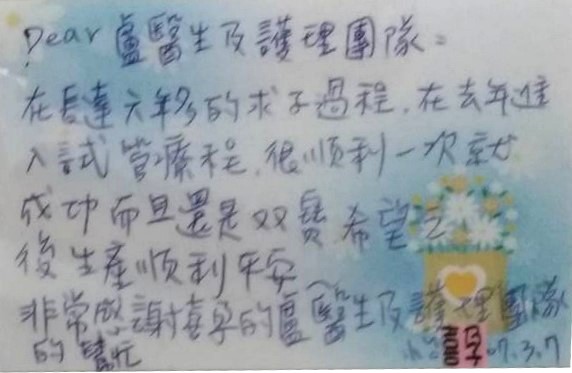 Dear 盧醫生及護理團隊：
在長達六年多的求子過程，在去年進
入試管療程，很順利一次就
成功而且還是双寶 希望之
後生產順利平安
非常感謝喜孕的盧醫生及護理團隊
的幫忙
07.3.7